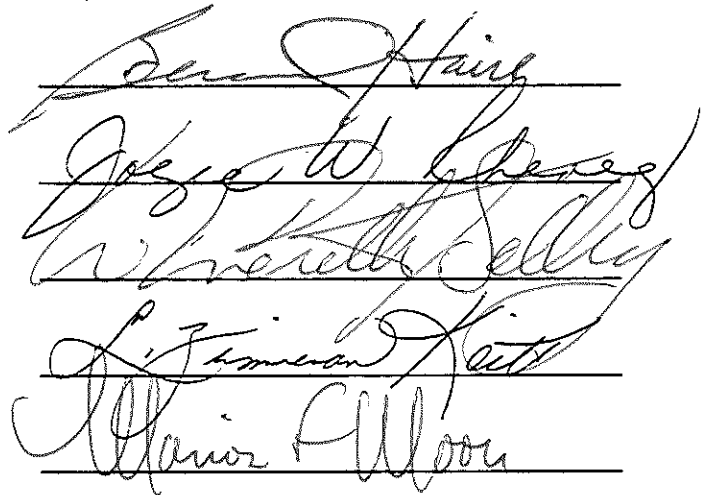 Ben J Haire
Jozie W Cheney
W Everett Kelly
L. Zimmerman Keitt
Marion F Moon